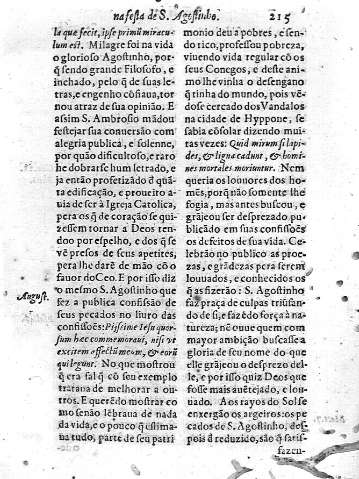 na festa de S. Agostinho. 215
la que fecit, ipse primũ miracu-
lum est. Milagre foi na vida
o glorioso Agostinho, por-
q̃ sendo grande Filosofo, e
inchado, pelo q̃ de suas le-
tras, e engenho cõfiaua, tor-
nou atraz de sua opinião. E
assim S. Ambrosio mãdou
festejar sua conuersão com
alegria publica, e solenne,
por quão dificultoso, e raro
he dobrarse hum letrado, e
ja então profetizado d' quã-
ta edificação, e proueito a-
uia de ser à Igreja Catolica,
pera os q̃ de coração se qui-
zessem tornar a Deos ren-
dido por espelho, e dos q̃ se
vê presos de seus apetites,
pera lhe darẽ de mão cõ o
fauor do Ceo. E por isso diz
o mesmo S. Agostinho que
fez a publica confissão de
seus pecados no liuro das
confissoẽs: Piissime Iesu quor-
sum hæc commemoraui, nisi vt
excitem affectũ meum, & eorũ
qui legunt. No que mostrou
q̃ era fal q̃ cõ seu exemplo
trataua de melhorar a ou-
tros. E querẽdo mostrar co
mo senão lẽbraua de nada
da vida, e o pouco q̃ estima-
ua tudo, parte de seu patri
August.
monio deu a pobres, e sen-
do rico, professou pobreza,
viuendo vida regular cõ os
seus Conegos, e deste ani-
mo lhe vinha o desengano
q̃ tinha do mundo, pois vẽ-
dose cercado dos Vandalos
na cidade de Hyppone, se
sabia cõsolar dizendo mui-
tas vezes: Quid mirum si lapi-
des, & ligna cadunt, & homi-
nes mortales moriuntur. Nem
queria os louuores dos ho-
mẽs, porq̃ não somente lhe
fogia, mas antes buscou, e
grãjeou ser desprezado, pu-
blicãdo em suas confissoẽs
os defeitos de sua vida. Ce-
lebrão no publico as proe-
zas, e grãdezas pera serem
louuados, e conhecidos os
q̃ as fizerão: S. Agostinho
faz praça de culpas triũfan-
do de si, e fazẽdo força à na-
tureza; nẽ ouue quem com
mayor ambição buscasse a
gloria de seu nome do que
elle grãjeou o desprezo del-
le, e por isso quiz Deos que
fosse mais auẽtejado, e lou-
uado. Aos rayos do Sol se
enxergão os argeiros: os pe-
cados de S. Agostinho, des-
pois d' reduzido, são q̃ satis-
fazen-